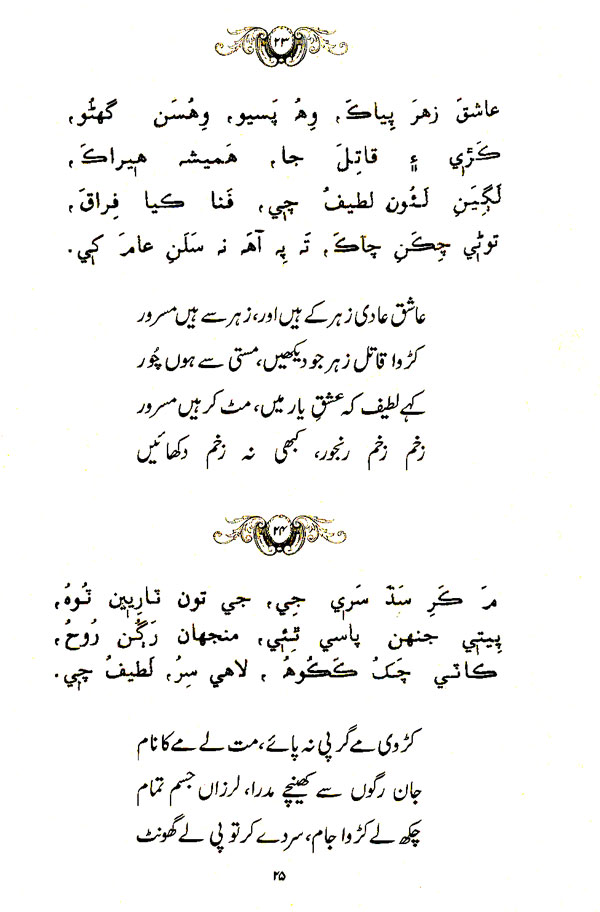 ۲۳
عاشقَ زهرَ پِياڪَ، وِهُ پَسيو، وِهُسَن گهڻُو،
ڪَڙِي ۽ قاتِلَ جا، هَميشہ هيراڪَ،
لَڳِيَنِ لَئُون لطيفُ چي، فَنا ڪيا فِراقَ،
توڻي چِڪَنِ چاڪَ، تَہ پِہ آهَہ نہ سَلَنِ عامَ کي.
عاشق عادی زہر کے ہیں اور، زہر سے ہیں مسرور
کڑوا قاتل زہر جو دیکھیں، مستی سے ہوں چُور
کہے لطیف کہ عشقِ یار میں، مٹ کر ہیں مسرور
زخم زخم رنجور، کبھی نہ زخم دکھائیں
۲۴
مَ ڪَرِ سَڌَ سَري جِي، جي تون تارِيين تُوہُ،
پِيتي جنهن پاسي ٿِئي، منجهان رَڳُن رُوحُ،
ڪاٽي چَکُ ڪَڪُوهُ، لاهي سِرُ، لَطيفُ چي.
کڑوی مے گر پی نہ پائے، مت لے مے کا نام
جان رگوں سے کھینچے مدرا، لرزاں جسم تمام
چکھ لے کڑوا جام، سر دے کر تو پی لے گھونٹ
۲۵